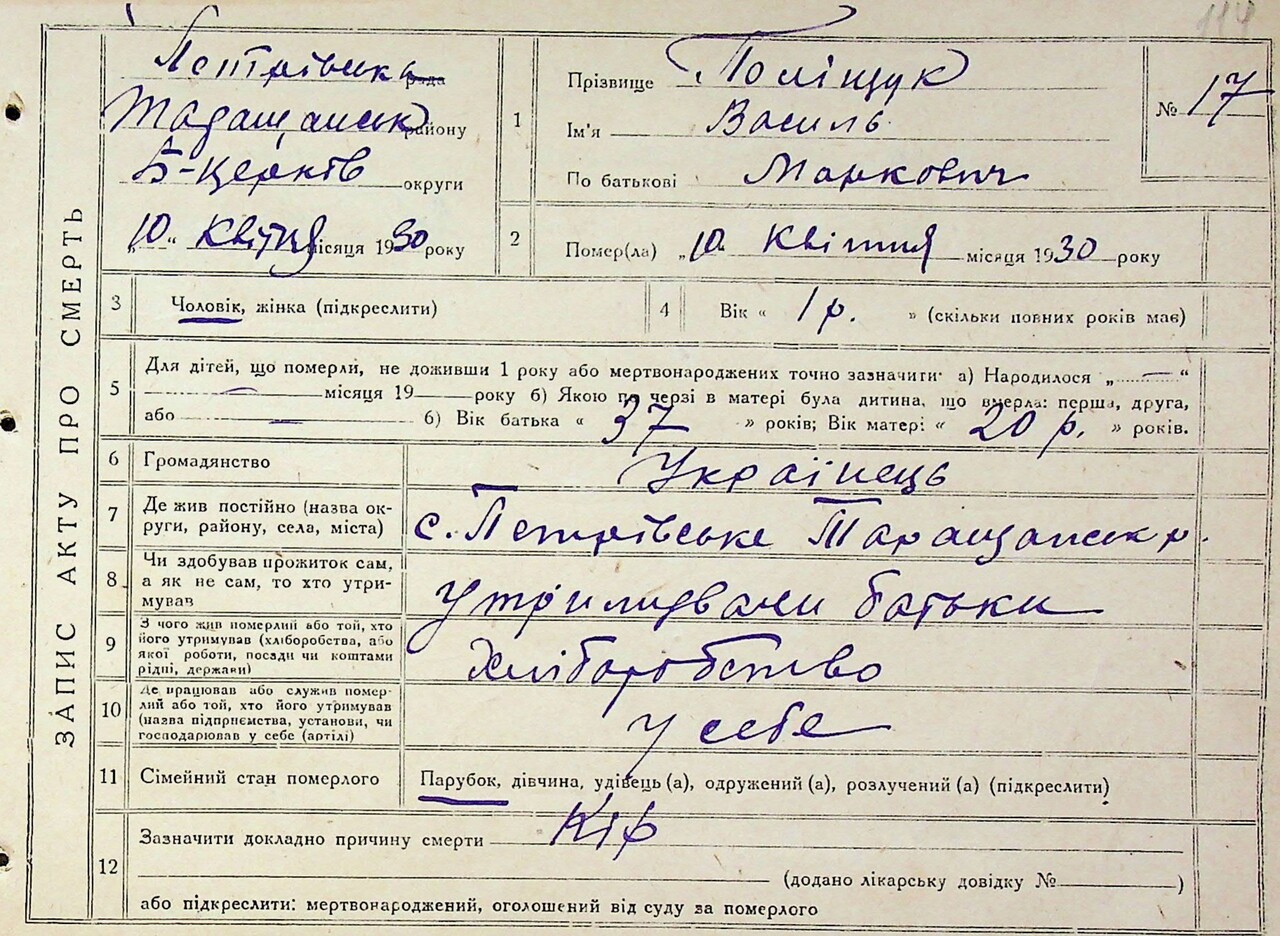 114
ЗАПИС АКТУ ПРО СМЕРТЬ
Петрівська рада
Таращанськ району
Б-Церків округи
„10“ Квітня місяця 1930 року
1
Прізвище Поліщук
Ім'я Василь
По батькові Маркович
№ 17
2
Помер(ла) „10 Квітня місяця 1930 року
3
Чоловік, жінка (підкреслити)
4
Вік « 1 р. » (скільки повних років має)
5
Для дітей, що померли, не доживши 1 року або мертвонароджених точно зазначити: а) Народилося „ — “
— місяця 19 року б) Якою по черзі в матері була дитина, що вмерла: перша, друга,
або — б) Вік батька « 37 » років; Вік матері: « 20 р. » років.
6
Громадянство
Українець
7
Де жив постійно (назва ок-
руги, району, села, міста)
с. Петрівське Таращанськ р.
8
Чи здобував прожиток сам,
а як не сам, то хто утри-
мував
утримували батьки
9
З чого жив померлий або той, хто
його утримував (хліборобства, або
якої роботи, посади чи коштами
рідні, держави)
Хліборобство
10
Де працював або служив помер-
лий або той, хто його утримував
(назва підприємства, установи, чи
господарював у себе (артілі)
у себе
11
Сімейний стан померлого
Парубок, дівчина, удівець (а), одружений (а), розлучений (а) (підкреслити)
12
Зазначити докладно причину смерти Кір
(додано лікарську довідку № )
або підкреслити: мертвонароджений, оголошений від суду за померлого